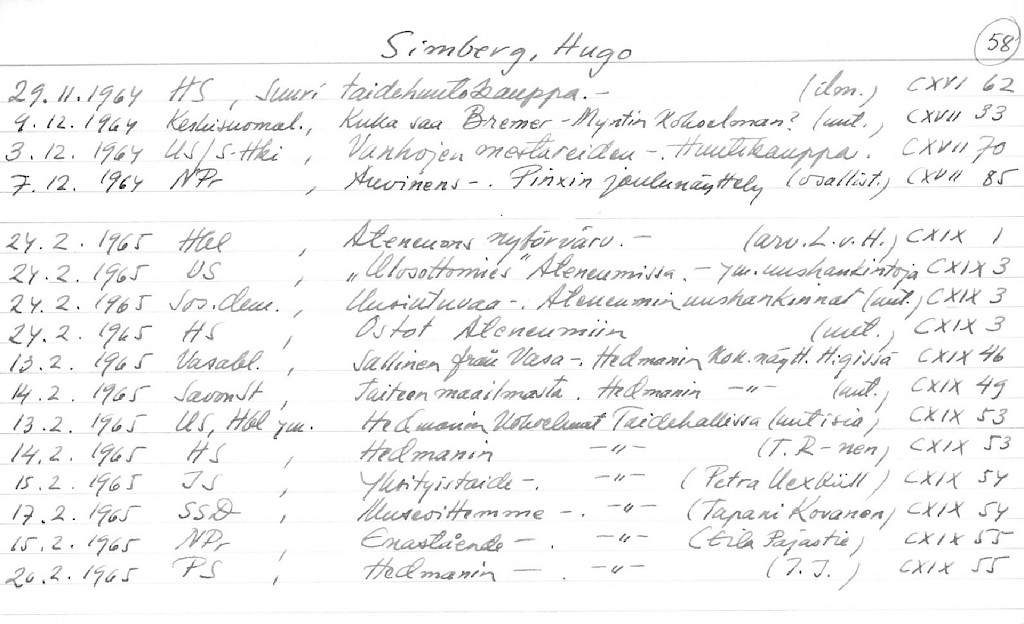 Simberg, Hugo 58
29.11.1964 HS, Suuri taidehuutokauppa.- (ilm.) CXVI 62
9.12.1964 Keskisuomal., Kuka saa Bremer-Myntin kokoelman? (uut.) CXVII 33
3.12.1964 US/S-Hki, Vanhojen mestareiden -. Huutokauppa. CXVII 70
7.12.1964 NPr, Auvinens -. Pinxin joulunäyttely (osallist.) CXVII 85
24.2.1965 Hbl, Ateneums nyförvärv.- (arv. L.v.H.) CXIX 1
24.2.1965 US, "Ulosottomies" Ateneumissa.- ym. uushankintoja CXIX 3
24.2.1965 Sos.dem., Ateneumin uushankinnat (uut.) CXIX 3
24.2.1965 HS, Ostot Ateneumiin (uut.) CXIX 3
13.2.1965 Vasabl., Sallinen från Vasa-. Hedmanin kok.näytt. H:gissä CXIX 46
14.2.1965 SavonSt, Taiteen maailmasta. Hedmanin -"- (uut.) CXIX 49
13.2.1965 US, Hbl ym. Hedmanin kokoelmat Taidehallissa (uutisia) CXIX 53
14.2.1965 HS, Hedmanin -"- (T. R-nen) CXIX 53
15.2.1965 IS, Yksityistaide-. -"- (Petra Uexküll) CXIX 54
17.2.1965 SSD, Museoittemme -. -"- (Tapani Kovanen) CXIX 54
15.2.1965 NPr, Enastående -. -"- (Eila Pajastie) CXIX 55
20.2.1965 PS, Hedmanin -. -"- (I.I.) CXIX 55